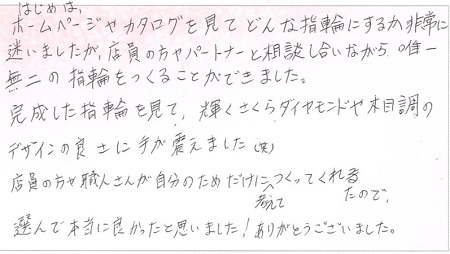 はじめは、
ホームページやカタログを見てどんな指輪にするか非常に
迷いましたが、店員の方やパートナーと相談し合いながら、唯一
無二の指輪をつくることができました。
完成した指輪を見て、輝くさくらダイヤモンドや木目調の
デザインの良さに手が震えました(笑)
店員の方や職人さんが自分のためだけに考えてつくってくれたので、
選んで本当に良かったと思いました!ありがとうございました。